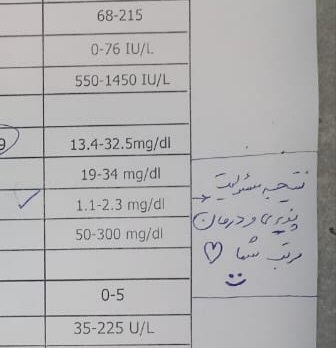 68-215
0-76 IU/L
550-1450 IU/L
9
13.4-32.5mg/dl
19-34 mg/dl
1.1-2.3 mg/dl
50-300 mg/dl
0-5
35-225 U/L
نتیجه مسئولیت
پذیری و درمان
مرتب شما